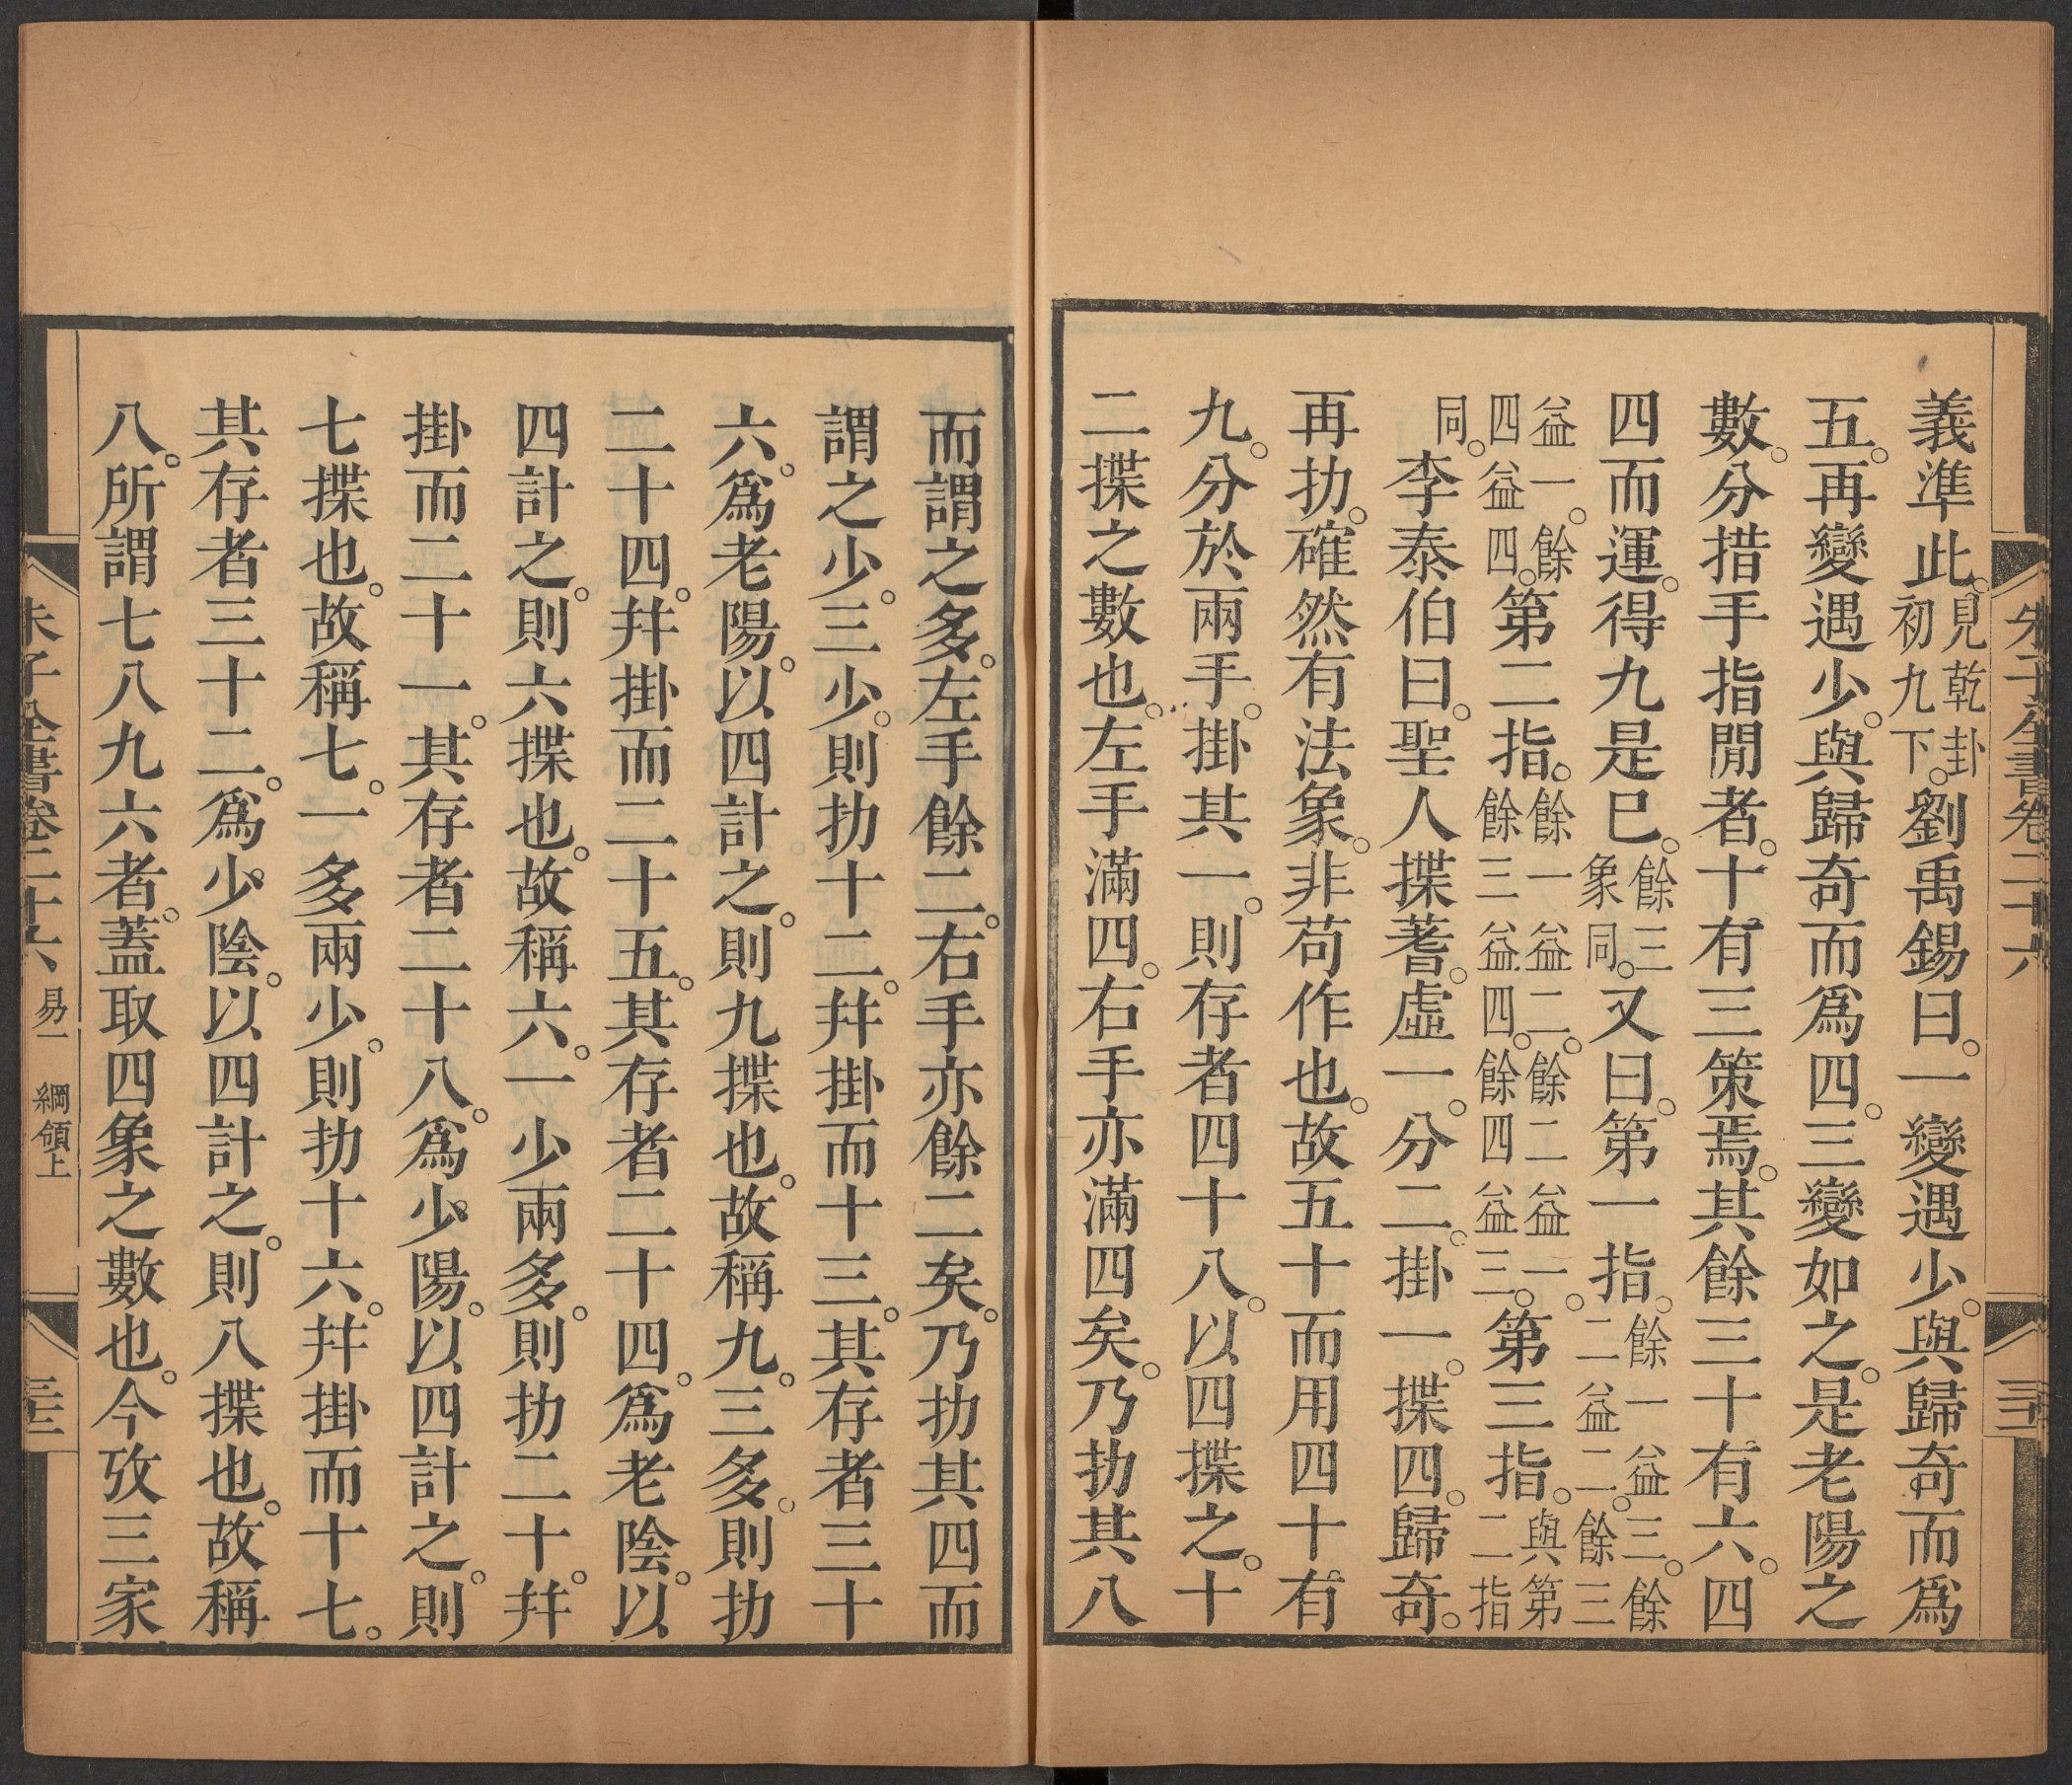 朱子全書卷二十六
義準此。見乾卦初九下。劉禹錫曰。一變遇少。與歸奇而爲
五。再變遇少。與歸奇而爲四。三變如之。是老陽之
數。分措手指閒者。十有三策焉。其餘三十有六。四
四而運。得九是巳。餘三象同。又曰。第一指。餘一益三。餘二益二。餘三
益一。餘四益四。第二指。餘一益二。餘二益一。餘三益四。餘四益三。第三指。與第二指
同。李泰伯曰。聖人揲蓍。虛一。分二。掛一。揲四。歸奇。
再扐。確然有法象。非苟作也。故五十而用四十有
九。分於兩手。掛其一。則存者四十八。以四揲之。十
二揲之數也。左手滿四。右手亦滿四矣。乃扐其八
而謂之多。左手餘二。右手亦餘二矣。乃扐其四而
謂之少。三少。則扐十二。幷掛而十三。其存者三十
六。爲老陽。以四計之。則九揲也。故稱九。三多。則扐
二十四。幷掛而二十五。其存者二十四。爲老陰。以
四計之。則六揲也。故稱六。一少兩多。則扐二十。幷
掛而二十一。其存者二十八。爲少陽。以四計之。則
七揲也。故稱七。一多兩少。則扐十六。幷掛而十七。
其存者三十二。爲少陰。以四計之。則八揲也。故稱
八。所謂七八九六者。蓋取四象之數也。今攷三家
朱子全書卷二十六 易一 綱領上